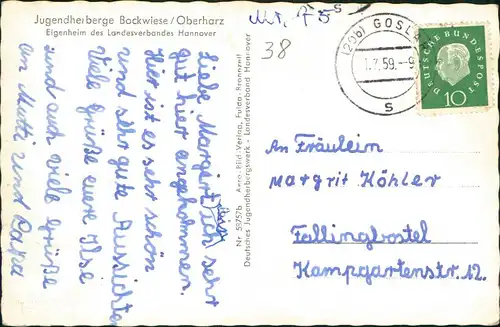 Jugendherberge Bockwiese/Oberharz
Eigenheim des Landesverbandes Hannover
Liebe Margrit, ich
sehr
gut hier angekommen.
Hier ist es sehr schön
und sehr gute Aussichten
Viele Grüße euere Ilse
und auch viele Grüße
an Mutti und Papa
Nr 59757b Aero-Bild-Verlag, Fulda-Bronnzell
Deutsches Jugendherbergswerk - Landesverband Hannover
38
(20b) GOSL
1.7.59.-9
s
DEUTSCHE BUNDESPOST
10
An Fräulein
Margrit Köhler
Fallingbostel
Kampgartenstr. 12.